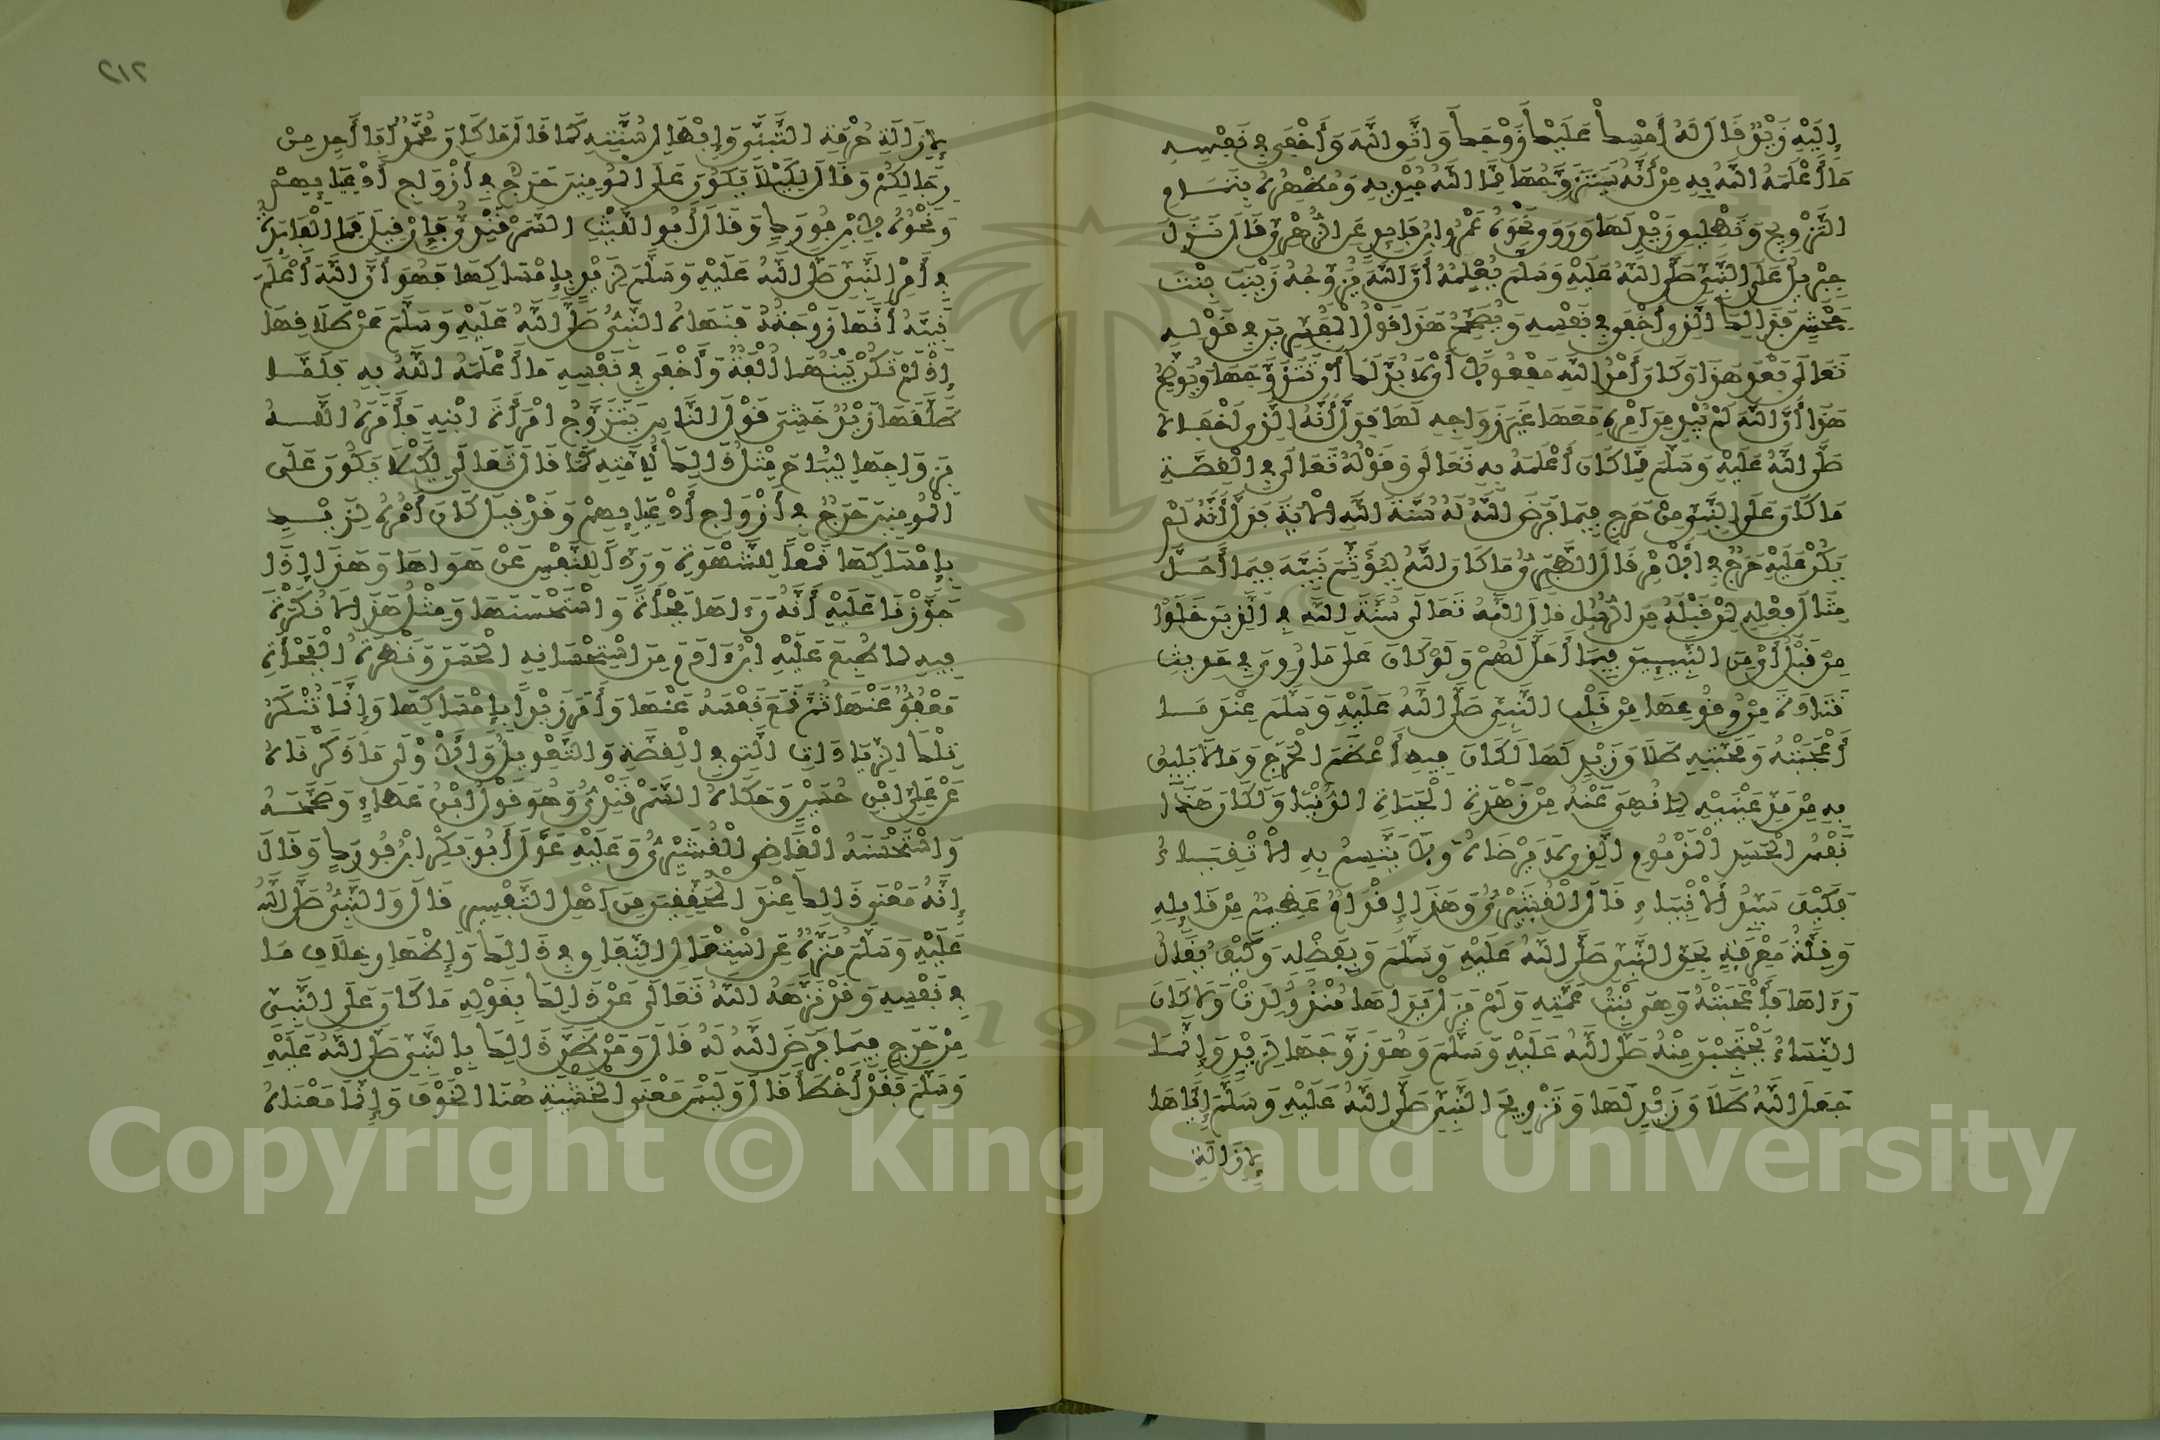 إِلَيْهِ زَيْدٌ قَالَ لَهُ أَمْسِكْ عَلَيْكَ زَوْجَكَ وَاتَّقِ اللَّهَ وَأَخْفَى فِي نَفْسِهِ
مَا أَعْلَمَهُ اللَّهُ بِهِ مِنْ أَنَّهُ سَيَتَزَوَّجُهَا مِمَّا اللَّهُ مُبْدِيهِ وَمُظْهِرُهُ بِتَمَامِ
التَّزْوِيجِ وَتَطْلِيقِ زَيْدٍ لَهَا وَرَوَى نَحْوَهُ عَمْرُو ابْنُ فَائِدٍ عَنِ الزُّهْرِيِّ قَالَ نَزَلَ
جِبْرِيلُ عَلَى النَّبِيِّ صَلَّى اللَّهُ عَلَيْهِ وَسَلَّمَ يُعْلِمُهُ أَنَّ اللَّهَ يُزَوِّجُهُ زَيْنَبَ بِنْتَ
جَحْشٍ فَذَلِكَ الَّذِي أَخْفَى فِي نَفْسِهِ وَيُصَحِّحُ هَذَا قَوْلُ الْمُفَسِّرِينَ فِي قَوْلِهِ
تَعَالَى بَعْدَ هَذَا وَكَانَ أَمْرُ اللَّهِ مَفْعُولاً أَيْ لاَ بُدَّ لَكَ أَنْ تَتَزَوَّجَهَا وَيُوَضِّحُ
هَذَا أَنَّ اللَّهَ لَمْ يُبْدِ مِنْ أَمْرِهِ مَعَهَا غَيْرَ زَوَاجِهِ لَهَا فَدَلَّ أَنَّهُ الَّذِي أَخْفَاهُ
صَلَّى اللَّهُ عَلَيْهِ وَسَلَّمَ مِمَّا كَانَ أَعْلَمَهُ بِهِ تَعَالَى وَقَوْلُهُ تَعَالَى فِي الْقِصَّةِ
مَا كَانَ عَلَى النَّبِيِّ مِنْ حَرَجٍ فِيمَا فَرَضَ اللَّهُ لَهُ سُنَّةَ اللَّهِ الْآيَةَ فَدَلَّ أَنَّهُ لَمْ
يَكُنْ عَلَيْهِ حَرَجٌ فِي الْأَمْرِ قَالَ الطَّبَرِيُّ مَا كَانَ اللَّهُ لِيُؤَثِّمَ نَبِيَّهُ فِيمَا أَحَلَّ
مِثَالَ فِعْلِهِ لِمَنْ قَبْلَهُ مِنَ الرُّسُلِ قَالَ اللَّهُ تَعَالَى سُنَّةَ اللَّهِ فِي الَّذِينَ خَلَوْا
مِنْ قَبْلُ أَيْ مِنَ النَّبِيِّينَ فِيمَا أَحَلَّ لَهُمْ وَلَوْ كَانَ عَلَى مَا رُوِيَ فِي حَدِيثِ
قَتَادَةَ مِنْ وُقُوعِهَا مِنْ قَلْبِ النَّبِيِّ صَلَّى اللَّهُ عَلَيْهِ وَسَلَّمَ عِنْدَ مَا
أَعْجَبَتْهُ وَمَحَبَّتِهِ طَلَاقَ زَيْدٍ لَهَا لَكَانَ فِيهِ أَعْظَمُ الْحَرَجِ وَمَا لَا يَلِيقُ
بِهِ مِنْ مَدِّ عَيْنَيْهِ لِمَا نُهِيَ عَنْهُ مِنْ زَهْرَةِ الْحَيَاةِ الدُّنْيَا وَلَكَانَ هَذَا
نَفْسَ الْحَسَدِ الْمَذْمُومِ الَّذِي لاَ يَرْضَاهُ وَلَا يَتَّسِمُ بِهِ الْأَتْقِيَاءُ
فَكَيْفَ سَيِّدُ الْأَنْبِيَاءِ قَالَ الْقُشَيْرِيُّ وَهَذَا إِقْدَامٌ عَظِيمٌ مِنْ قَائِلِهِ
وَقِلَّةُ مَعْرِفَةٍ بِحَقِّ النَّبِيِّ صَلَّى اللَّهُ عَلَيْهِ وَسَلَّمَ وَبِفَضْلِهِ وَكَيْفَ يُقَالُ
رَءَاهَا فَأَعْجَبَتْهُ وَهِيَ بِنْتُ عَمَّتِهِ وَلَمْ يَزَلْ يَرَاهَا مُنْذُ وُلِدَتْ وَلَا كَانَ
النِّسَاءُ يَحْتَجِبْنَ مِنْهُ صَلَّى اللَّهُ عَلَيْهِ وَسَلَّمَ وَهُوَ زَوَّجَهَا لِزَيْدٍ وَإِنَّمَا
جَعَلَ اللَّهُ طَلَاقَ زَيْدٍ لَهَا وَتَزْوِيجَ النَّبِيِّ صَلَّى اللَّهُ عَلَيْهِ وَسَلَّمَ إِيَّاهَا
لِإِزَالَةِ
٢١٢
لِإِزَالَةِ حُرْمَةِ التَّبَنِّي وَإِبْطَالِ سُنَّتِهِ كَمَا قَالَ مَا كَانَ مُحَمَّدٌ أَبَا أَحَدٍ مِنْ
رِجَالِكُمْ وَقَالَ لِكَيْلَا يَكُونَ عَلَى الْمُومِنِينَ حَرَجٌ فِي أَزْوَاجِ أَدْعِيَائِهِمْ
وَنَحْوُهُ لِابْنِ فُورَكٍ وَقَالَ أَبُو اللَّيْثِ السَّمَرْقَنْدِيُّ فَإِنْ قِيلَ فَمَا الْفَائِدَةُ
فِي أَمْرِ النَّبِيِّ صَلَّى اللَّهُ عَلَيْهِ وَسَلَّمَ لِزَيْدٍ بِإِمْسَاكِهَا فَهُوَ أَنَّ اللَّهَ أَعْلَمَ
نَبِيَّهُ أَنَّهَا زَوْجَتُهُ فَنَهَاهُ النَّبِيُّ صَلَّى اللَّهُ عَلَيْهِ وَسَلَّمَ عَنْ طَلَاقِهَا
إِذْ لَمْ تَكُنْ بَيْنَهُمَا أُلْفَةٌ وَأَخْفَى فِي نَفْسِهِ مَا أَعْلَمَهُ اللَّهُ بِهِ فَلَمَّا
طَلَّقَهَا زَيْدٌ خَشِيَ قَوْلَ النَّاسِ يَتَزَوَّجُ امْرَأَةَ ابْنِهِ فَأَمَرَهُ اللَّهُ
بِزَوَاجِهَا لِيُبَاحَ مِثْلُ ذَلِكَ لِأُمَّتِهِ كَمَا قَالَ تَعَالَى لِكَيْلَا يَكُونَ عَلَى
الْمُومِنِينَ حَرَجٌ فِي أَزْوَاجِ أَدْعِيَائِهِمْ وَقَدْ قِيلَ كَانَ أَمْرُهُ لِزَيْدٍ
بِإِمْسَاكِهَا قَمْعاً لِلشَّهْوَةِ وَرَدّاً لِلنَّفْسِ عَنْ هَوَاهَا وَهَذَا إِذَا
جَوَّزْنَا عَلَيْهِ أَنَّهُ رَءَاهَا فَجْأَةً وَاسْتَحْسَنَهَا وَمِثْلُ هَذَا لَا نُكْرَةَ
فِيهِ لِمَا طُبِعَ عَلَيْهِ ابْنُ ءَادَمَ مِنَ اسْتِحْسَانِهِ الْحَسَنَ وَنَظْرَةُ الْفَجْأَةِ
مَعْفُوٌّ عَنْهَا ثُمَّ قَمَعَ نَفْسَهُ عَنْهَا وَأَمَرَ زَيْداً بِإِمْسَاكِهَا وَإِنَّمَا تُنْكَرُ
تِلْكَ الزِّيَادَاتُ الَّتِي فِي الْقِصَّةِ وَالتَّعْوِيلُ وَالْأَوْلَى مَا ذَكَرْنَاهُ
عَنْ عَلِيِّ ابْنِ حُسَيْنٍ وَحَكَاهُ السَّمَرْقَنْدِيُّ وَهُوَ قَوْلُ ابْنِ عَطَاءٍ وَصَحَّحَهُ
وَاسْتَحْسَنَهُ الْقَاضِي الْقُشَيْرِيُّ وَعَلَيْهِ عَوَّلَ أَبُو بَكْرٍ ابْنُ فُورَكٍ وَقَالَ
إِنَّهُ مَعْنَى ذَلِكَ عِنْدَ الْمُحَقِّقِينَ مِنْ أَهْلِ التَّفْسِيرِ قَالَ وَالنَّبِيُّ صَلَّى اللَّهُ
عَلَيْهِ وَسَلَّمَ مُنَزَّهٌ عَنِ اسْتِعْمَالِ النِّفَاقِ فِي ذَلِكَ وَإِظْهَارِ خِلَافِ مَا
فِي نَفْسِهِ وَقَدْ نَزَّهَهُ اللَّهُ تَعَالَى عَنْ ذَلِكَ بِقَوْلِهِ مَا كَانَ عَلَى النَّبِيِّ
مِنْ حَرَجٍ فِيمَا فَرَضَ اللَّهُ لَهُ قَالَ وَمَنْ ظَنَّ ذَلِكَ بِالنَّبِيِّ صَلَّى اللَّهُ عَلَيْهِ
وَسَلَّمَ فَقَدْ أَخْطَأَ قَالَ وَلَيْسَ مَعْنَى الْخَشْيَةِ هُنَا الْخَوْفَ وَإِنَّمَا مَعْنَاهُ
Copyright © King Saud University
1957